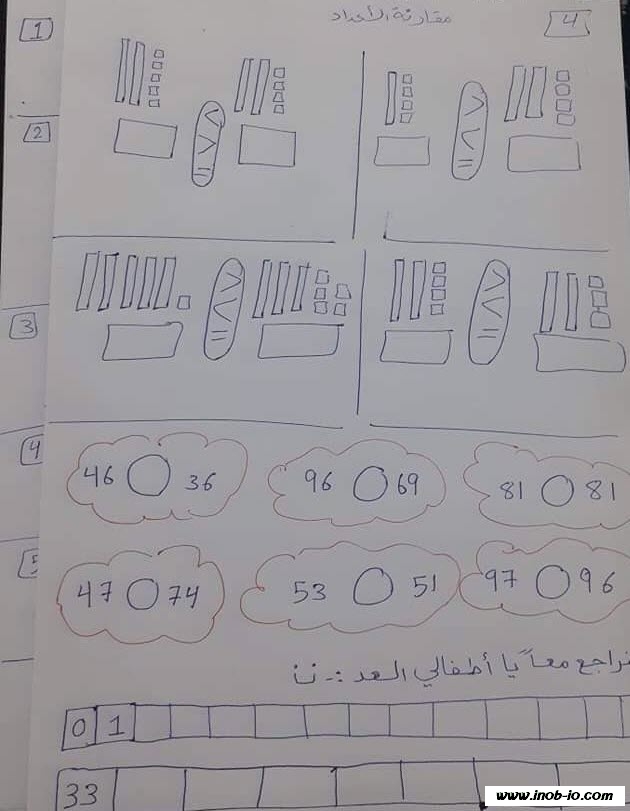 4 مقارنة الأعداد
1
2
3
4
5
> < =
> < =
> < =
> < =
46 ○ 36
96 ○ 69
81 ○ 81
47 ○ 74
53 ○ 51
97 ○ 96
نراجع معاً يا أطفالي العد :-
0 1
33
www.inob-io.com